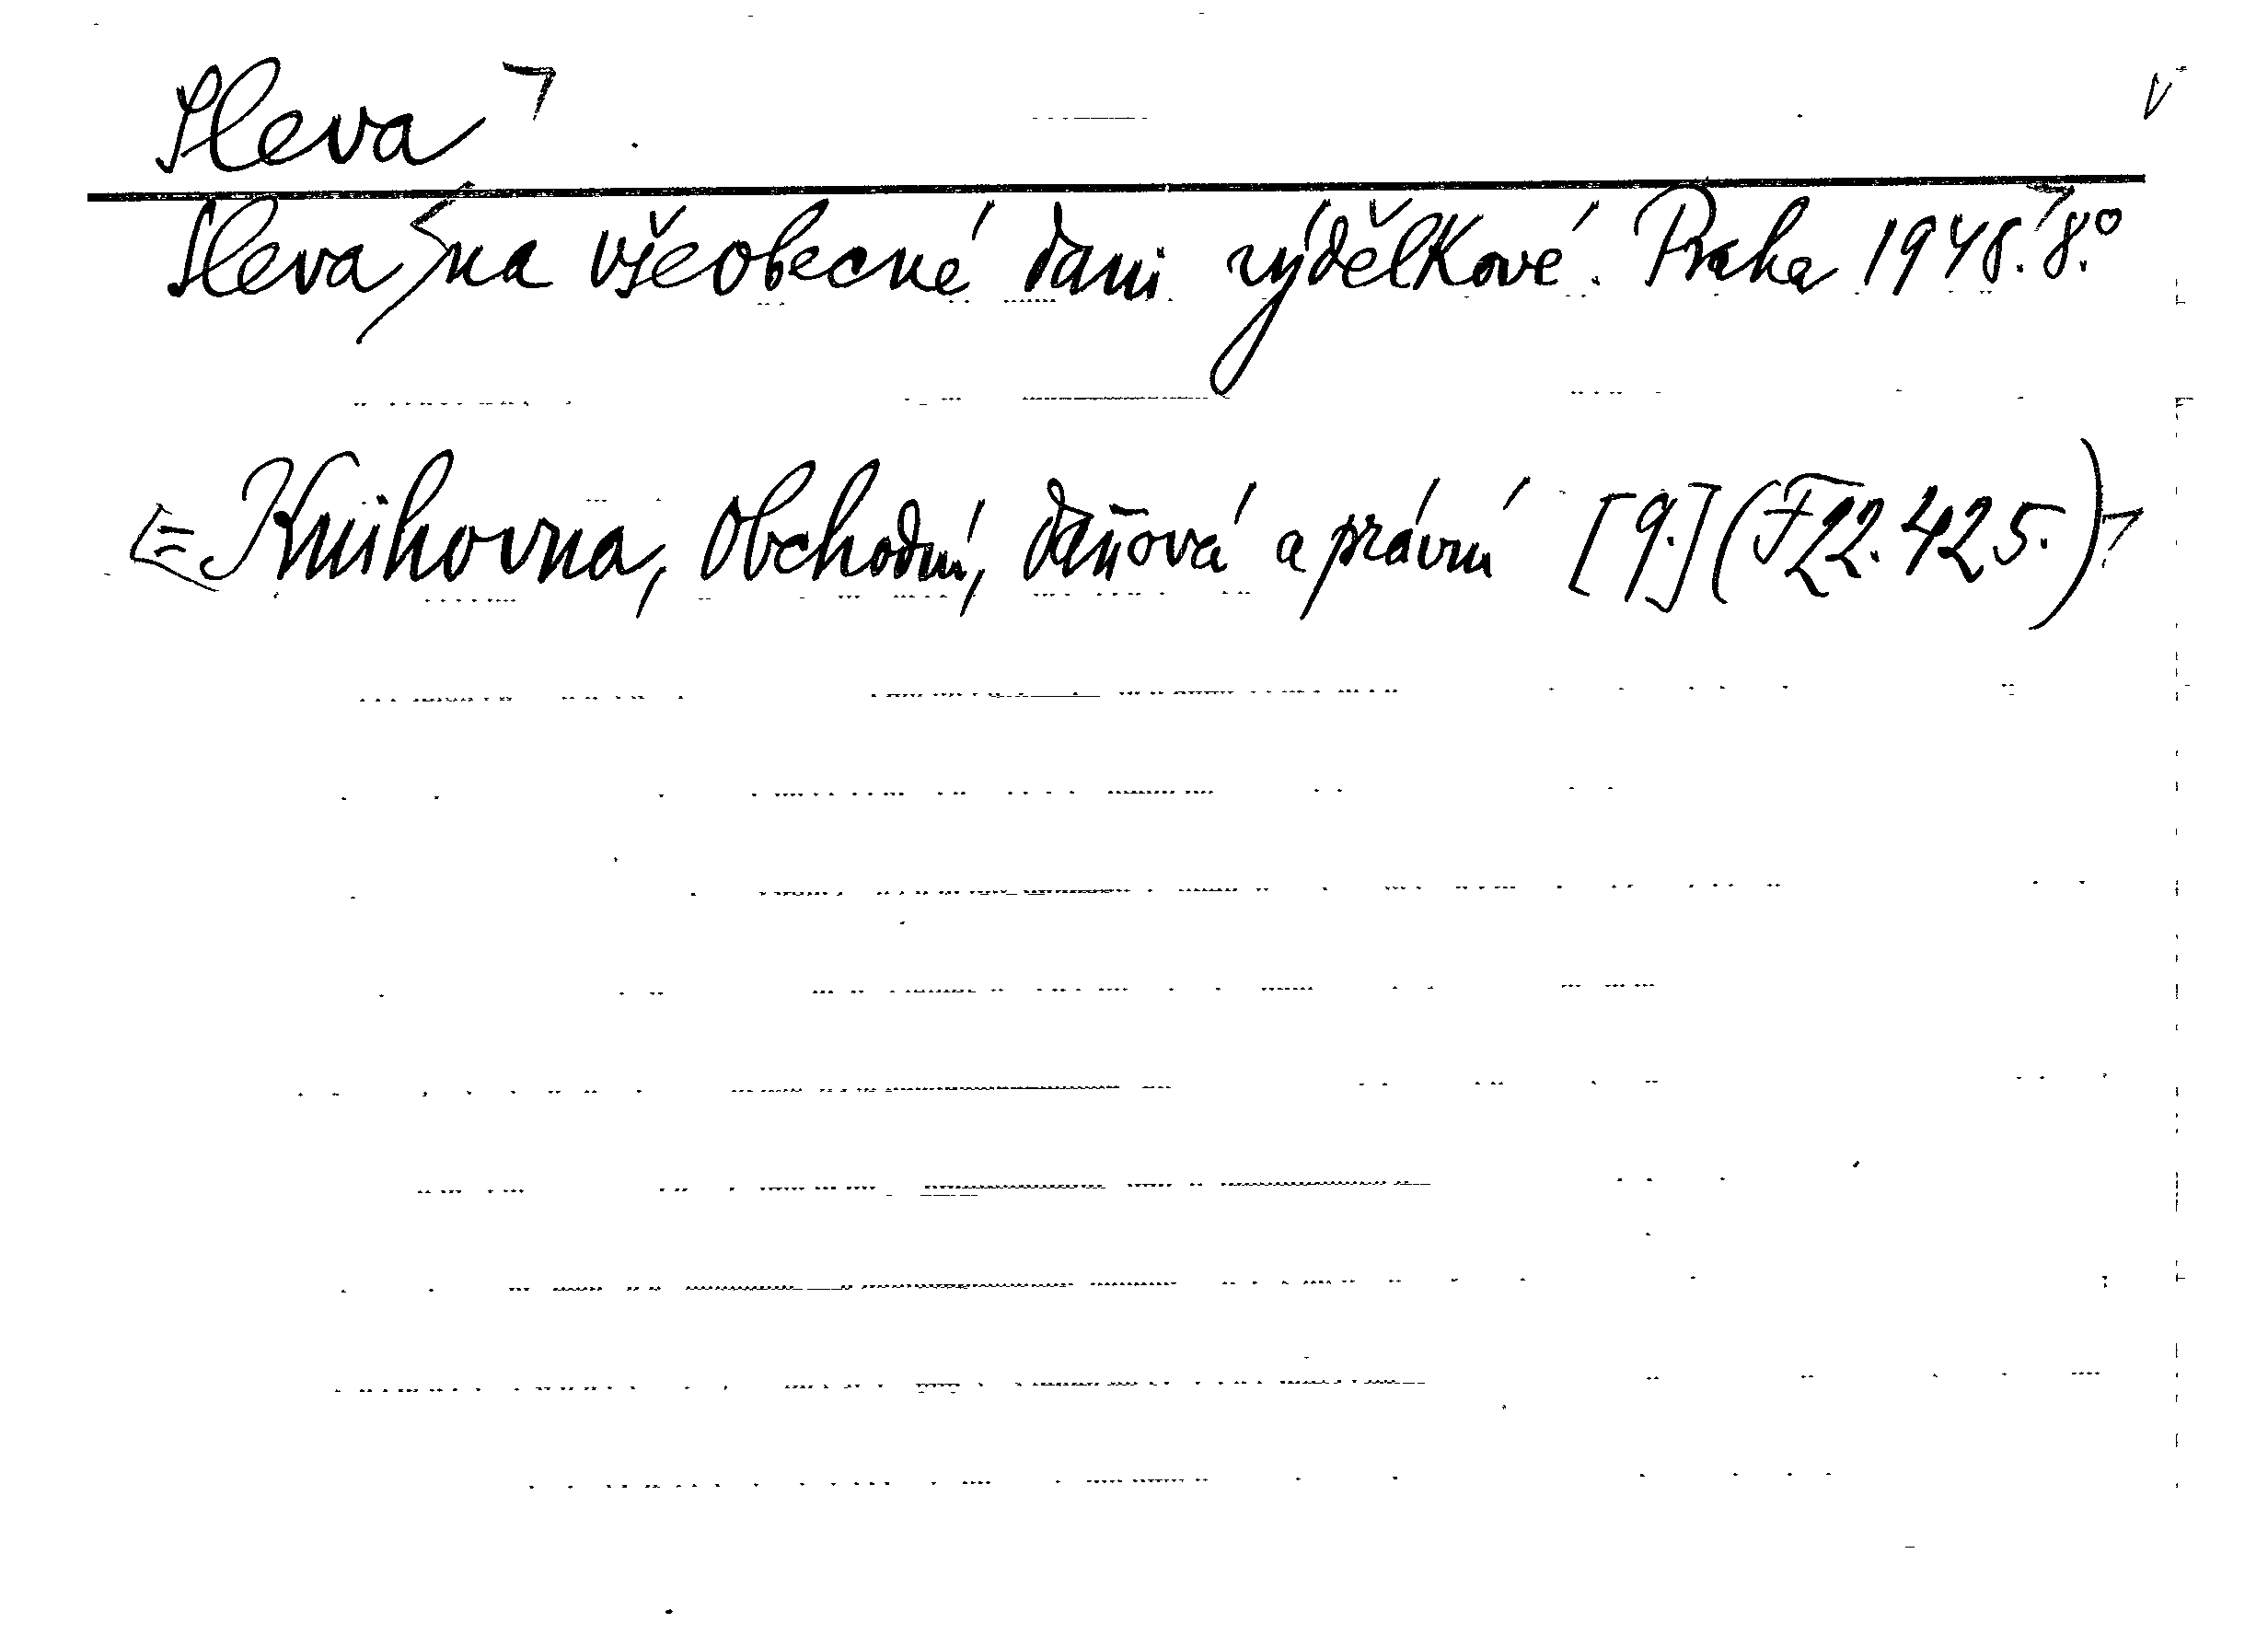 Sleva
Sleva na všeobecné dani výdělkové. Praha 1948. 8.°
= Knihovna, obchodní, daňová a právní [9.] (F 22.425.)